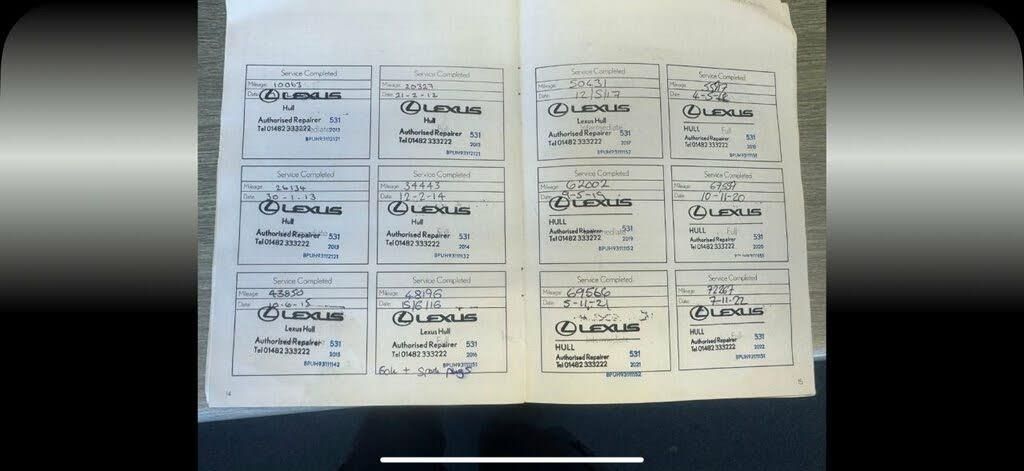 Service Completed
Mileage 10063
Date
LEXUS
Hull
Authorised Repairer 531
Tel 01482 333222
BPUH93112121
Service Completed
Mileage 20327
Date 21-2-12
LEXUS
Hull
Authorised Repairer 531
Tel 01482 333222
BPUH93112121
Service Completed
Mileage 26134
Date 30-1-13
LEXUS
Hull
Authorised Repairer 531
Tel 01482 333222 2013
BPUH93112121
Service Completed
Mileage 34443
Date 12-2-14
LEXUS
Hull
Authorised Repairer 531
Tel 01482 333222 2014
Service Completed
Mileage 43850
Date 10-6-15
LEXUS
Lexus Hull
Authorised Repairer 531
Tel 01482 333222 2015
BPUH93111142
Service Completed
Mileage 48196
Date 15/6/16
LEXUS
Lexus Hull
Authorised Repairer 531
Tel 01482 333222 2016
+ Spark plugs
14
Service Completed
Mileage 50431
Date 12/5/17
LEXUS
Lexus Hull
Intermediate
Authorised Repairer 531
Tel 01482 333222 2017
BPUH93111152
Service Completed
Mileage
Date
LEXUS
HULL Full
Authorised Repairer 531
Tel 01482 333222
Service Completed
Mileage 62002
Date
LEXUS
HULL
Authorised Repairer 531
Tel 01482 333222 2019
BPUH93111152
Service Completed
Mileage
Date 10-11-20
LEXUS
HULL Full
Authorised Repairer 531
Tel 01482 333222 2020
Service Completed
Mileage 69566
Date 5-11-21
LEXUS
HULL Intermediate
Authorised Repairer 531
Tel 01482 333222 2021
BPUH93111152
Service Completed
Mileage 72867
Date 7-11-22
LEXUS
HULL
Authorised Repairer 531
Tel 01482 333222 2022
15